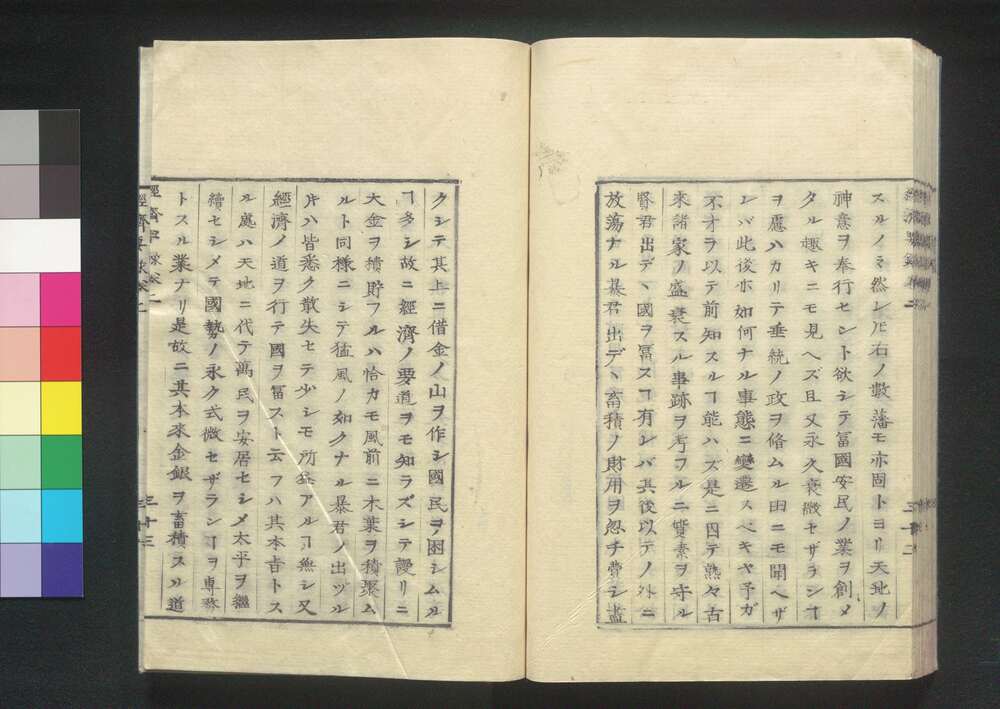 スルノミ然レ𪜈右ノ數藩モ亦固トヨリ天地ノ
神意ヲ奉行セント欲シテ冨國安民ノ業ヲ創メ
タル趣キニモ見ヘズ且又永久衰微セザランヿ
ヲ慮ハカリテ垂統ノ政ヲ脩ムル由ニモ聞ヘザ
レバ此後亦如何ナル事態ニ變遷スベキヤ予ガ
不才ヲ以テ前知スルヿ能ハズ是ニ因テ熟々古
來諸家ノ盛衰スル事跡ヲ考フルニ質素ヲ守ル
賢君出デヽ國ヲ冨スヿ有レバ其後以テノ外ニ
放蕩ナル暴君出デヽ畜積ノ財用ヲ忽チ費シ盡
クシテ其上ニ借金ノ山ヲ作シ國民ヲ困シムル
ヿ多シ故ニ經濟ノ要道ヲモ知ラズシテ謾リニ
大金ヲ積貯フルハ恰カモ風前ニ木葉ヲ積聚ム
ルト同様ニシテ猛風ノ如クナル暴君ノ出ヅル
片ハ皆悉ク散失セテ少シモ所益アルヿ無シ又
經濟ノ道ヲ行テ國ヲ冨スト云フハ其本旨トス
ル處ハ天地ニ代テ萬民ヲ安居セシメ太平ヲ繼
續セシメテ國勢ノ永ク式微セザランヿヲ專務
トスル業ナリ是故ニ其本來金銀ヲ畜積スル道
三十二
三十三